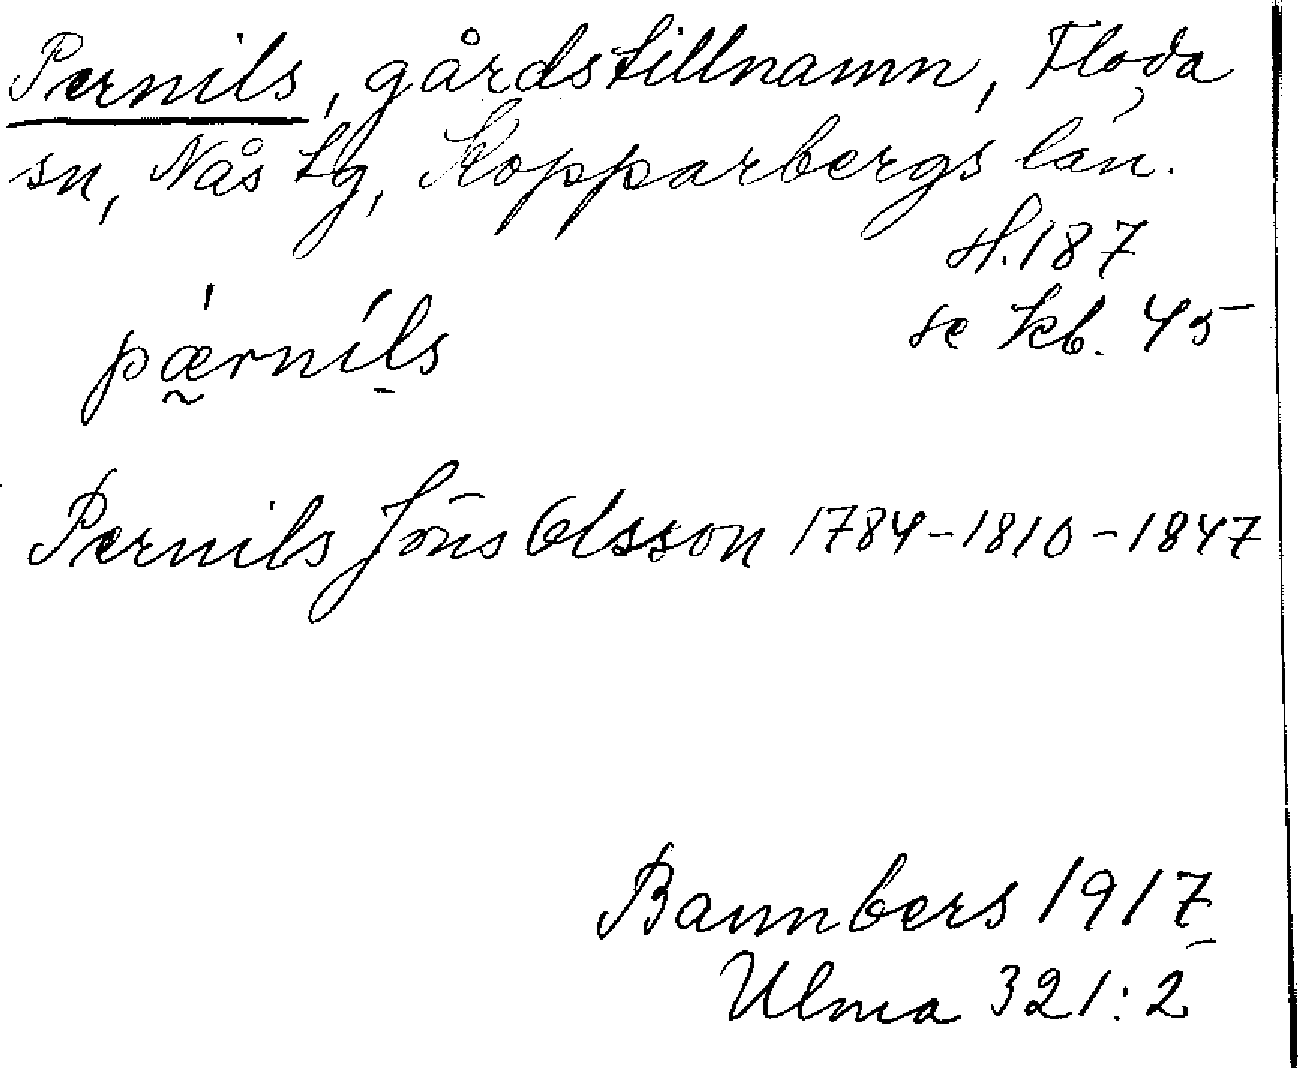 Pernils, gårdstillnamn, Floda
sn, Nås tg, Kopparbergs län.
H.187
se kb. 45
pǽrníls
Pernils Jöns Olsson 1784-1810-1847
Bannbers 1917
Ulma 321:2